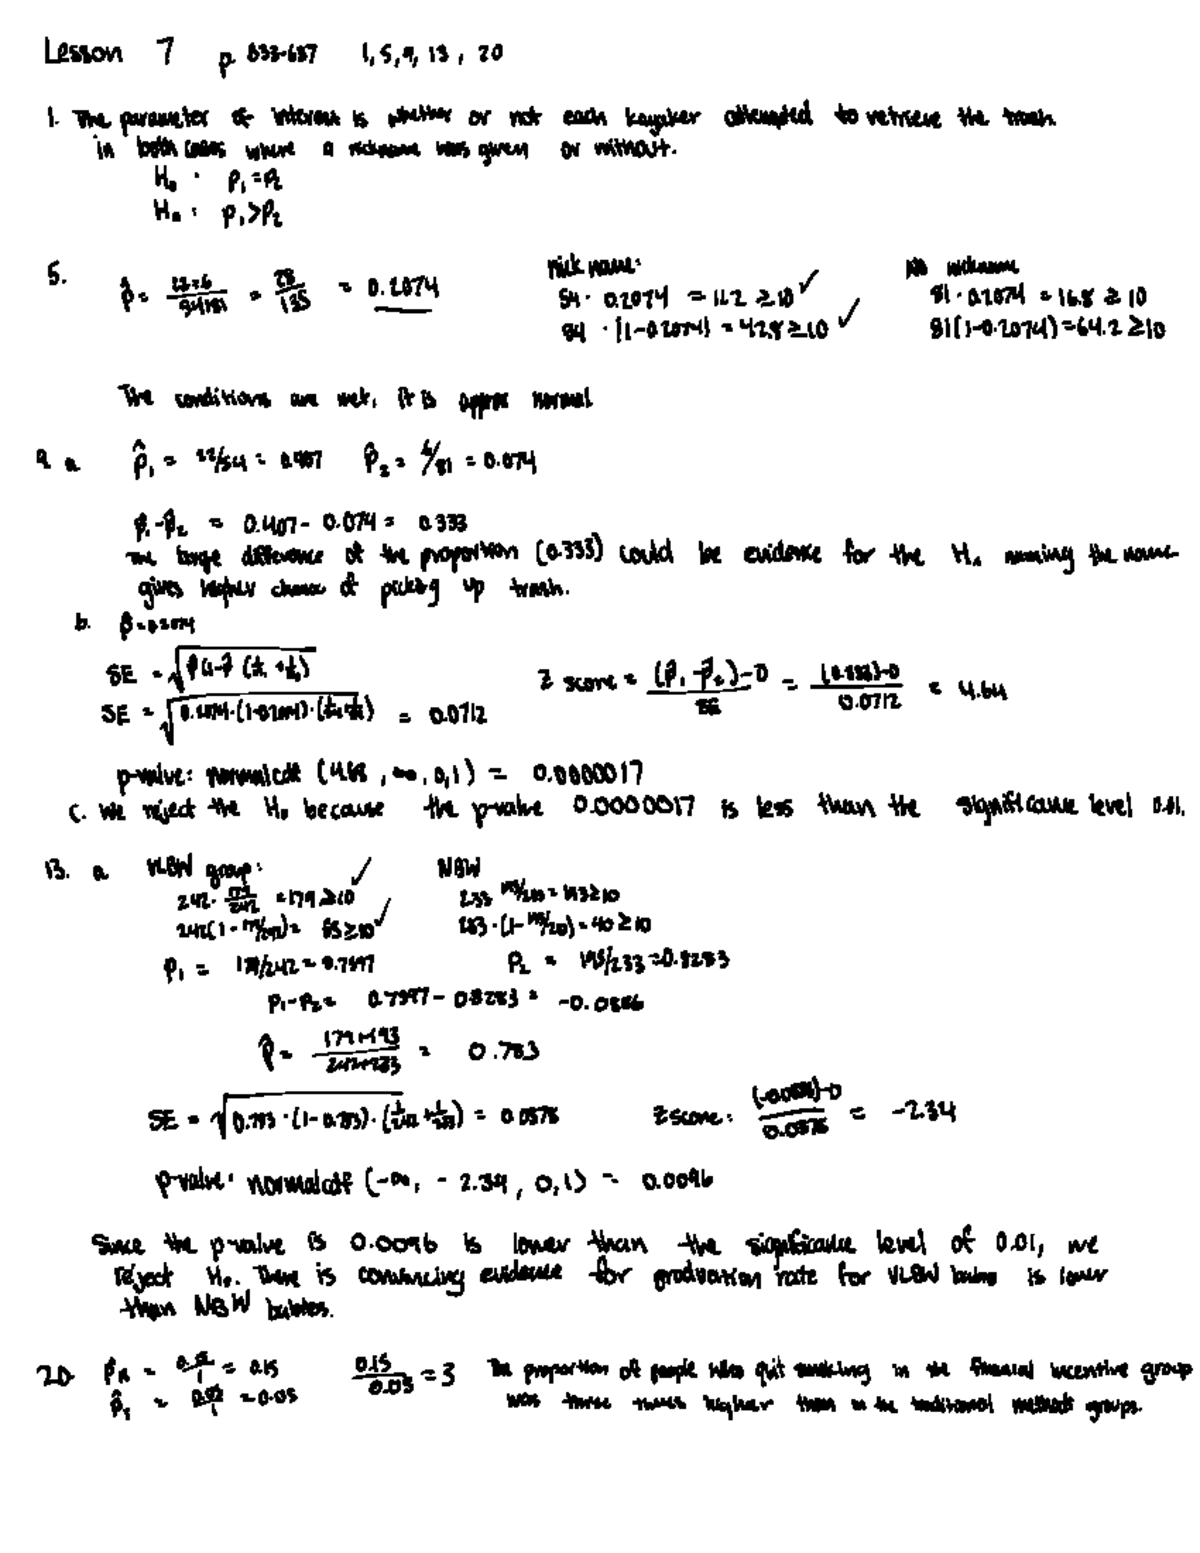 Lesson 7 p. 633-637 1, 5, 9, 13, 20
1. The parameter of interest is whether or not each kayaker attempted to retrieve the trash
in both cases where a nickname was given or without.
H₀ : p₁=p₂
Hₐ : p₁>p₂
5. p̂ = 22+6/54+81 = 28/135 = 0.2074
Nick name:
54 · 0.2074 = 11.2 ≥ 10 ✓
54 · (1-0.2074) = 42.8 ≥ 10 ✓
No nickname
81 · 0.2074 = 16.8 ≥ 10
81(1-0.2074) = 64.2 ≥ 10
The conditions are met, it is approx normal
9. a p̂₁ = 22/54 = 0.407 p̂₂ = 6/81 = 0.074
p̂₁-p̂₂ = 0.407 - 0.074 = 0.333
The large difference of the proportion (0.333) could be evidence for the Hₐ naming the name
gives higher chance of picking up trash.
b. p̂ = 0.2074
SE = √p̂(1-p̂ (1/n₁ + 1/n₂)
SE = √0.2074·(1-0.2074)·(1/54+1/81) = 0.0712
Z score = (p̂₁-p̂₂)-0/SE = (0.333)-0/0.0712 = 4.64
p-value: normalcdf (4.68, ∞, 0, 1) = 0.0000017
C. We reject the H₀ because the p-value 0.0000017 is less than the significance level 0.01.
13. a VLBW group: ✓
242 · 179/242 = 179 ≥ 10
242(1 - 179/242) = 63 ≥ 10 ✓
NBW
233 · 193/233 = 193 ≥ 10
233 · (1- 193/233) = 40 ≥ 10
p₁ = 179/242 = 0.7397 p₂ = 193/233 = 0.8283
p₁-p₂ = 0.7397 - 0.8283 = -0.0886
p̂ = 179+193/242+233 = 0.783
SE = √0.783 · (1-0.783) · (1/242 + 1/233) = 0.0378
Z score: (-0.0886)-0/0.0378 = -2.34
p-value: normalcdf (-∞, -2.34, 0, 1) = 0.0096
Since the p-value is 0.0096 is lower than the significance level of 0.01, we
reject H₀. There is convincing evidence for graduation rate for VLBW babies is lower
than NBW babies.
20 = 0.15/1 = 0.15 = 0.05/1 = 0.05 0.15/0.05 = 3 The proportion of people who quit smoking in the financial incentive group
was three times higher than in the traditional methods groups.